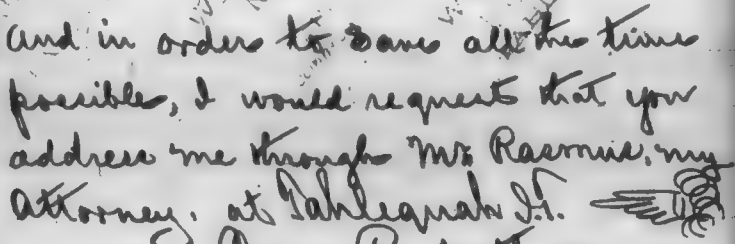 and in order to save all the time
possible, I would request that you
address me through Mr. Rasmus, my
Attorney. at Tahlequah I.T.